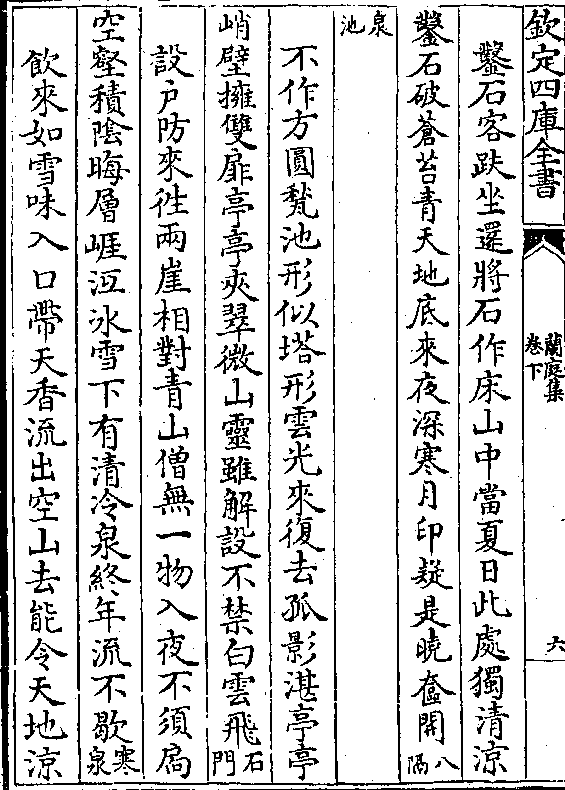 欽定四庫全書
蘭庭集
卷下
六
鑿石客趺坐還將石作床山中當夏日此處獨清涼
鑿石破蒼苔青天地底來夜深寒月印疑是曉奩開八隅
泉池
不作方圓甃池形似塔形雲光來復去孤影湛亭亭
峭壁擁雙扉亭亭夾翠微山靈雖解設不禁白雲飛石門
設戶防來徃兩崖相對青山僧無一物入夜不須扃
空壑積陰晦層崕沍冰雪下有清冷泉終年流不歇寒泉
飲來如雪味入口帶天香流出空山去能令天地涼